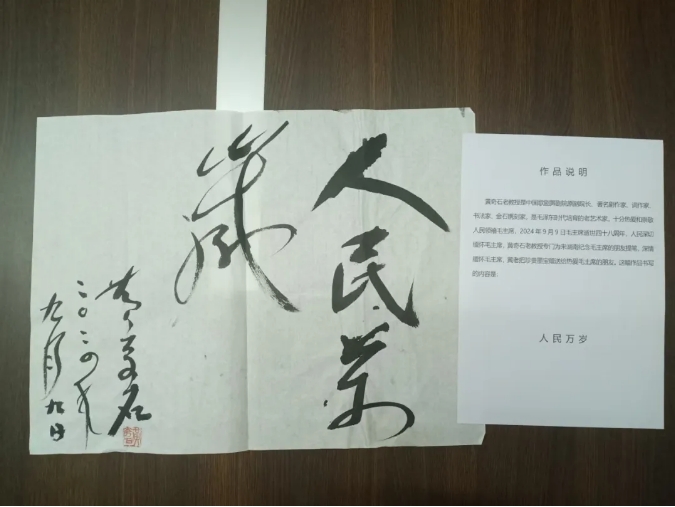 人民萬
歲
黄奇石
二〇二四年
九月九日
作品说明
黄奇石老教授是中国歌剧舞剧院原副院长、著名剧作家、词作家、
书法家、金石镌刻家、是毛泽东时代培育的老艺术家、十分热爱和崇敬
人民领袖毛主席。2024年9月9日毛主席逝世四十八周年、人民深切
缅怀毛主席、黄奇石老教授专门为来湖南纪念毛主席的朋友提笔、深情
缅怀毛主席、黄老把珍贵墨宝赠送给热爱毛主席的朋友。这幅作品书写
的内容是:
人民万岁